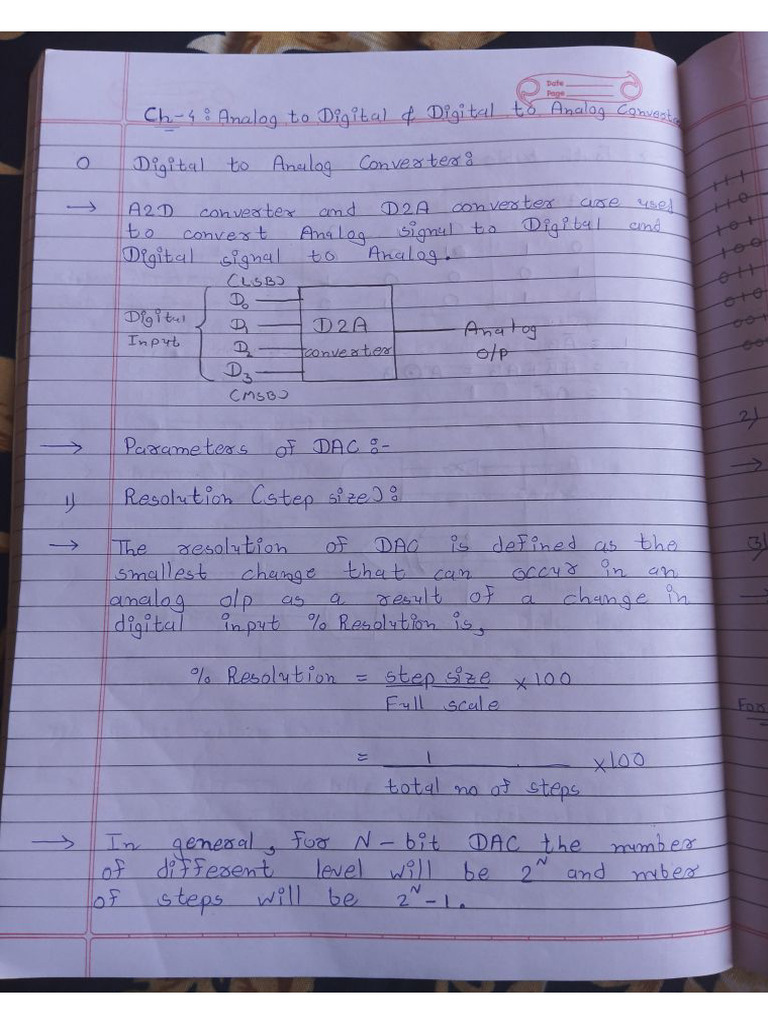 Date
Page
Ch-4: Analog to Digital & Digital to Analog Converte
O Digital to Analog Converter:
→ A2D converter and D2A converter are used
to convert Analog signal to Digital and
Digital signal to Analog.
(LSB)
Digital Input
D0
D1
D2
D3
(MSB)
D2A
converter
Analog
O/P
→ Parameters of DAC :-
1) Resolution (step size):
→ The resolution of DAC is defined as the
smallest change that can occur in an
analog o/p as a result of a change in
digital input % Resolution is,
% Resolution = step size / Full scale ×100
= 1 / total no of steps ×100
→ In general, for N-bit DAC the number
of different level will be 2^N and nuber
of steps will be 2^N-1.
111
110
101
100
011
010
001
000
2)
→
3)
→
For